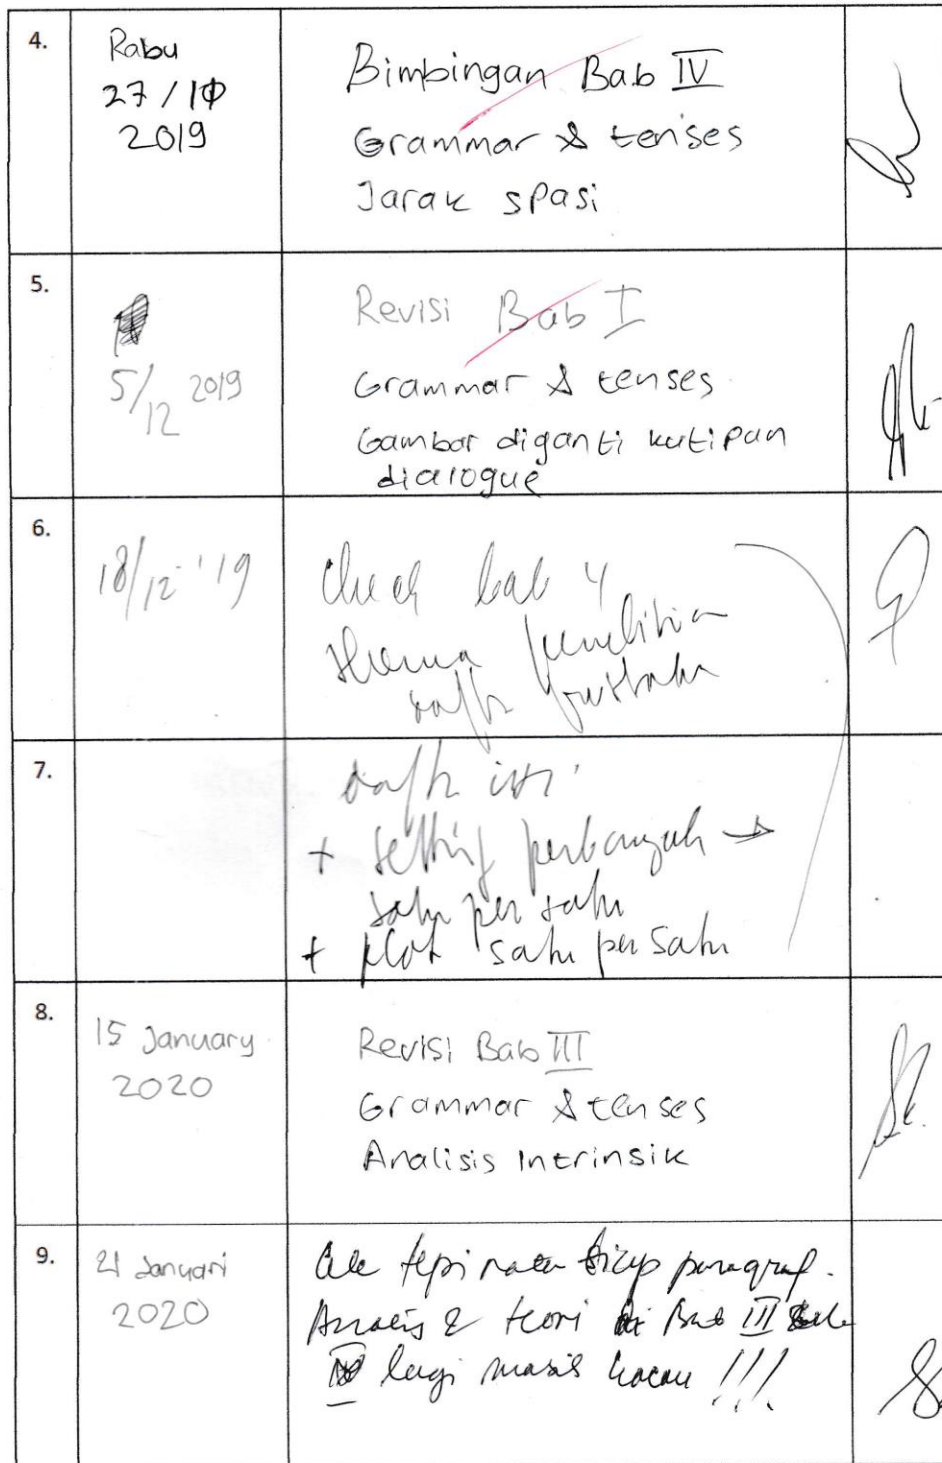 4.
Rabu
27/10
2019
Bimbingan Bab IV
Grammar & tenses
Jarak spasi
5.
5/12 2019
Revisi Bab I
Grammar & tenses
Gambar diganti kutipan
dialogue
6.
18/12 '19
Check bab 4
skema penelitian
daftar pustaka
7.
daftar isi
+ setting perbanyak →
satu per satu
+ plot satu per satu
8.
15 January
2020
Revisi Bab III
Grammar & tenses
Analisis Intrinsik
9.
21 Januari
2020
tepi rata tiap paragraf.
Analisis & teori di Bab III
lagi masih kacau !!!